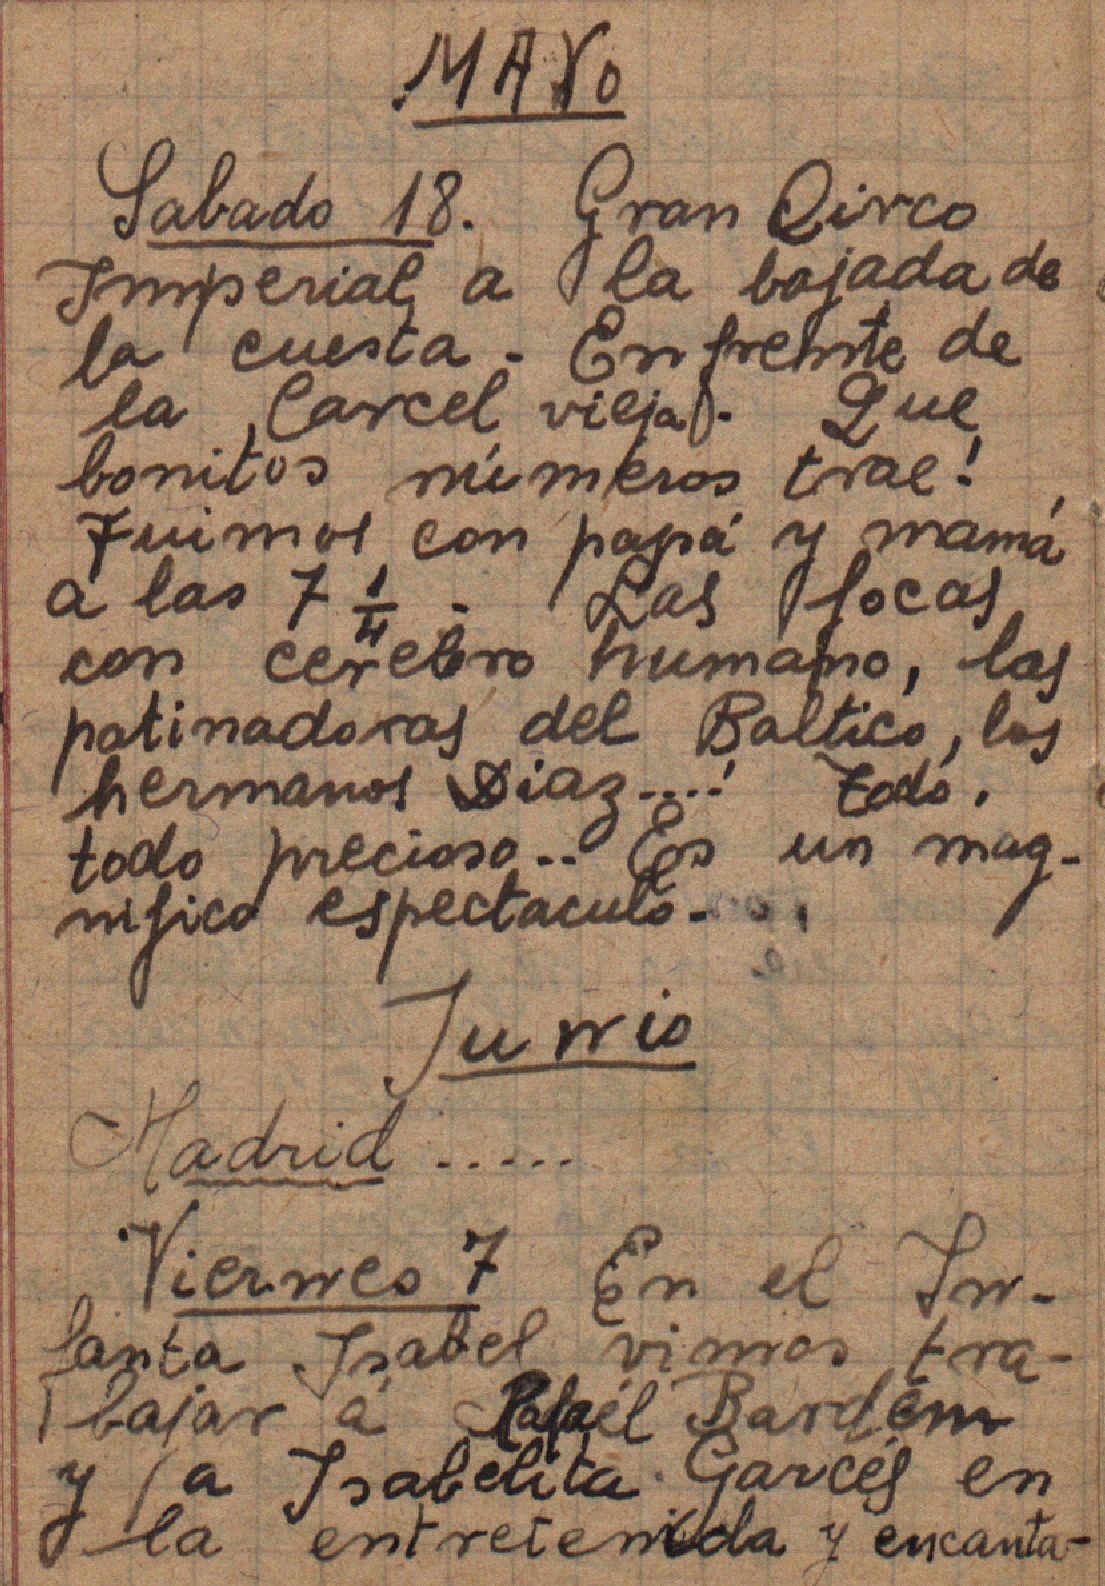 MAYo
Sabado 18. Gran Circo
Imperial, a la bajada de
la cuesta. Enfrente de
la Carcel vieja. Que
bonitos números trae!
Fuimos con papá y mamá
a las 7 1/4. Las focas
con cerebro humano, las
patinadoras del Baltico, los
hermanos Diaz....! Todo,
todo precioso.. Es un mag-
nifico espectaculo.
Junio
Madrid .....
Viernes 7 En el In-
fanta Isabel vimos tra-
bajar á Rafael Bardem
y a Isabelita Garcés en
la entretenida y encanta-